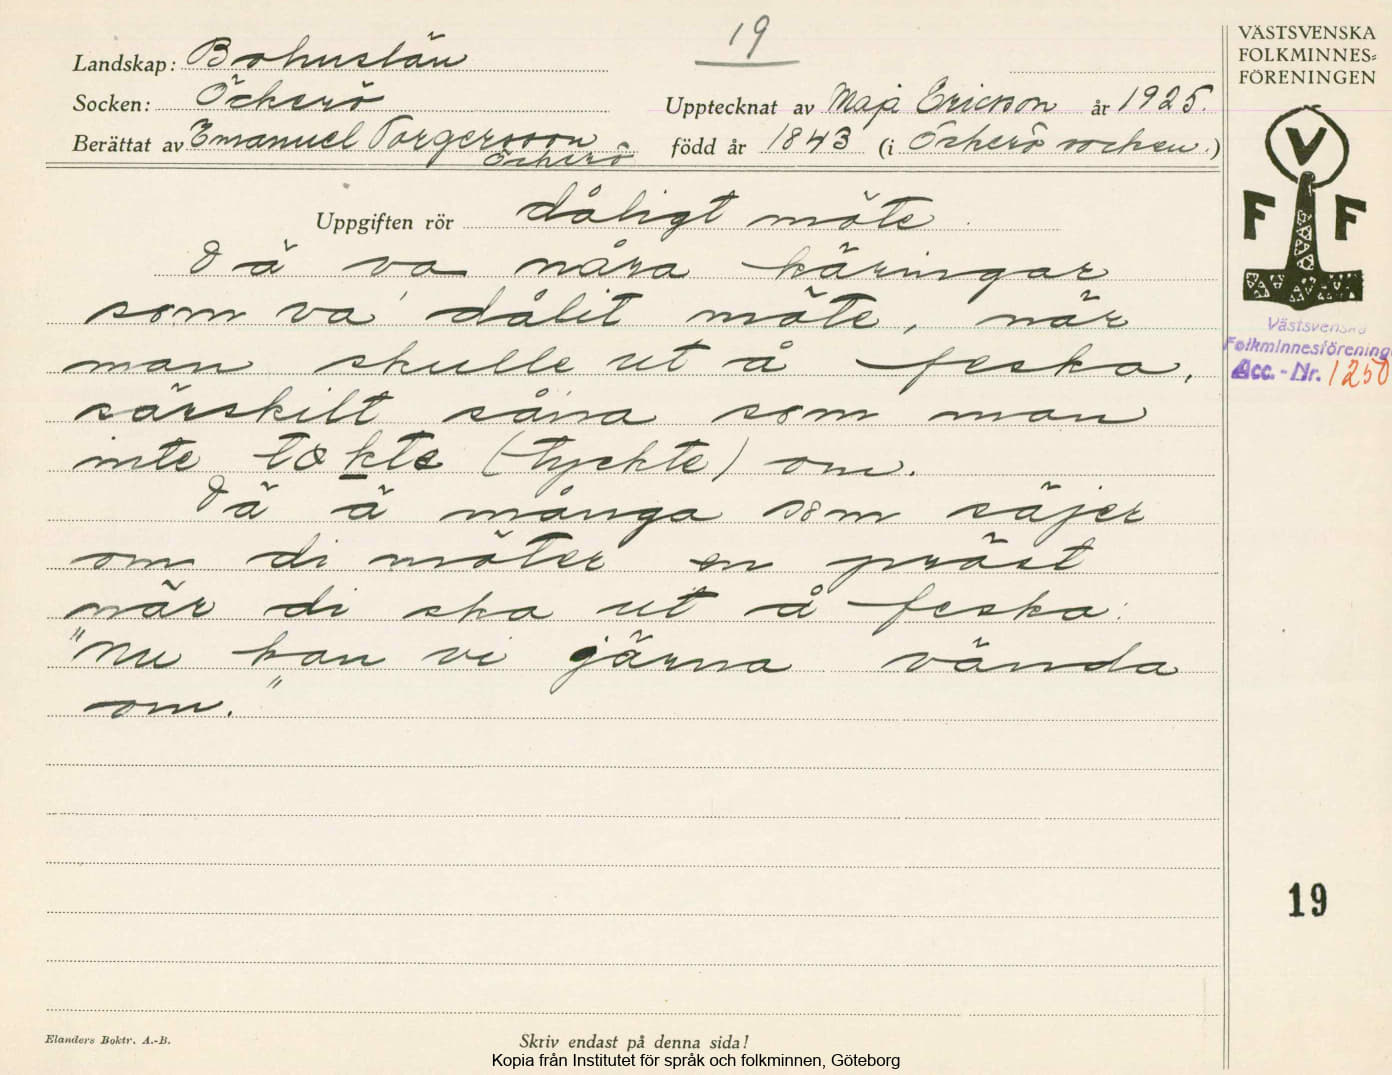 19
VÄSTSVENSKA
FOLKMINNES=
FÖRENINGEN
Landskap: Bohuslän
Socken: Öckerö
Upptecknat av Maja Ericson år 1925.
Berättat av Emanuel Torgersson
Öckerö
född år 1843 (i Öckerö socken.)
V
F F
Uppgiften rör dåligt möte
Dä va nåra käringar
som va dålit möte, när
man skulle ut å feska,
särskilt såna som man
inte tøkte (tyckte) om.
Dä ä många som säjer
om di möter en präst
när di ska ut å feska:
"Nu kan vi järna vända
om."
Västsvenska
Folkminnesförening
Acc.-Nr. 1250
19
Elanders Boktr. A.-B.
Skriv endast på denna sida!
Kopia från Institutet för språk och folkminnen, Göteborg